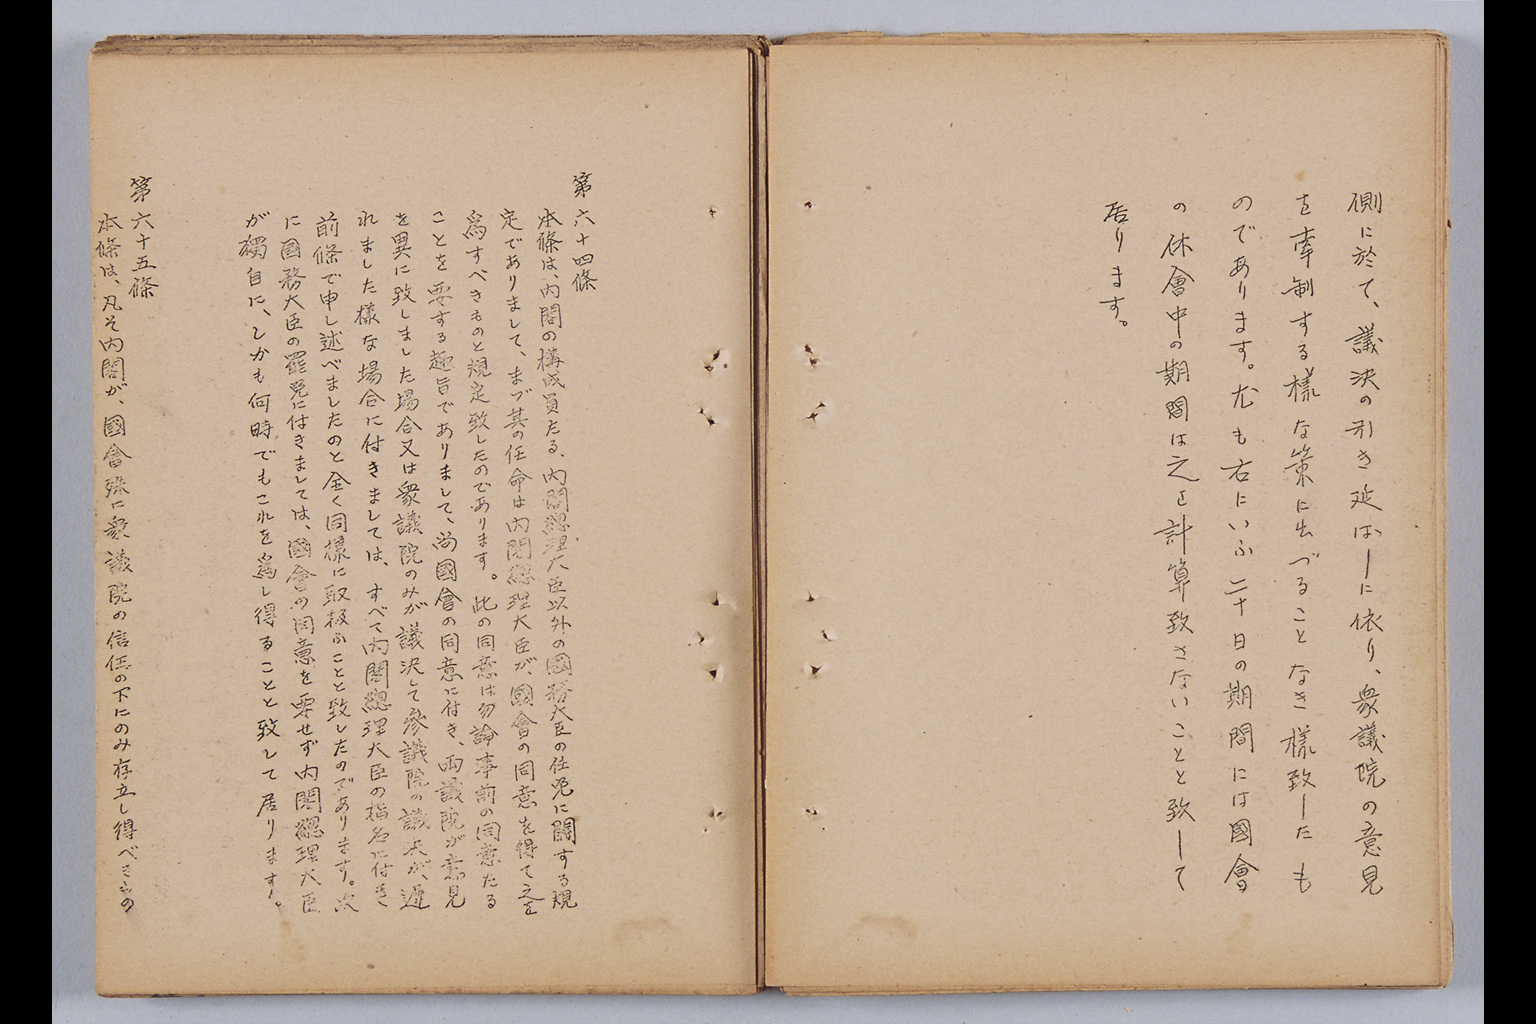 側に於て、議決の引き延ばしに依り、衆議院の意見
を牽制する樣な策に出づることなき樣致したも
のであります。尤も右にいふ二十日の期間には國會
の休會中の期間は之を計算致さないことと致して
居ります。
第六十四條
本條は、内閣の構成員たる、内閣總理大臣以外の國務大臣の任免に關する規
定でありまして、まづ其の任命は内閣總理大臣が、國會の同意を得て之を
爲すべきものと規定致したのであります。此の同意は勿論事前の同意たる
ことを要する趣旨でありまして、尚國會の同意に付き、両議院が意見
を異に致しました場合又は衆議院のみが議決して參議院の議決が、遲
れました樣な場合に付きましては、すべて内閣總理大臣の指名に付き
前條で申し述べましたのと全く同樣に取扱ふことと致したのであります。次
に國務大臣の罷免に付きましては、國會の同意を要せず内閣總理大臣
が獨自に、しかも何時でもこれを爲し得ることと致して居ります。
第六十五條
本條は、凡そ内閣が、國會殊に衆議院の信任の下にのみ存立し得べきもの